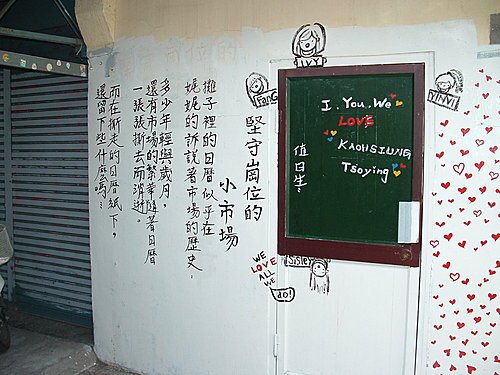 堅守崗位的
小市場
攤子裡的日曆似乎在
娓娓的訴說著市場的歷史.
多少年輕與歲月,
還有市場的繁華隨著日曆
一張張撕去而消逝。
而在撕走的日曆紙下,
還留下些什麼嗎?
IVY
FanG
YINYI
I. You. We
LOVE
KAOHSIUNG
Tsoying
值日生:
Sisley
WE
LOVE
ALL
WE
do!